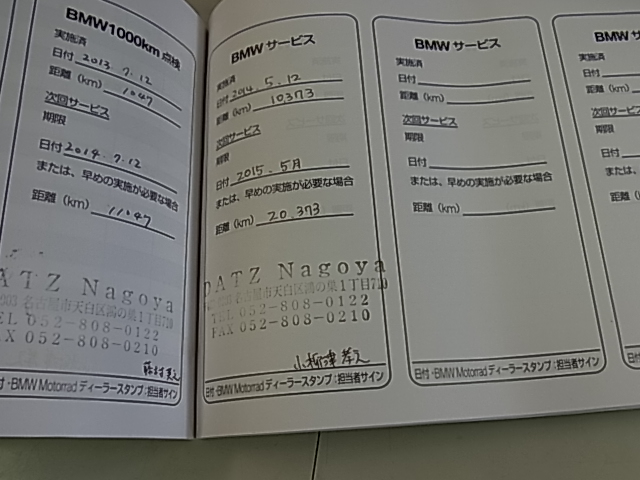 BMW1000km 点検
実施済
日付 2013.7.12
距離（km） 1047
次回サービス
期限
日付 2014.7.12
または、早めの実施が必要な場合
距離（km） 11047
ATZ Nagoya
名古屋市天白区鴻の巣1丁目710
EL 052-808-0122
AX 052-808-0210
付・BMW Motorrad ディーラースタンプ：担当者サイン
BMW サービス
実施済
日付 2014.5.12
距離（km） 10373
次回サービス
期限
日付 2015.5月
または、早めの実施が必要な場合
距離（km） 20.373
DATZ Nagoya
名古屋市天白区鴻の巣1丁目710
TEL 052-808-0122
FAX 052-808-0210
日付・BMW Motorrad ディーラースタンプ：担当者サイン
BMW サービス
実施済
日付
距離（km）
次回サービス
期限
日付
または、早めの実施が必要な場合
距離（km）
日付・BMW Motorrad ディーラースタンプ：担当者サイン
BMW
実施済
日付
距離（km）
次回サービス
期限
日付
または、早
距離（k
日付・B